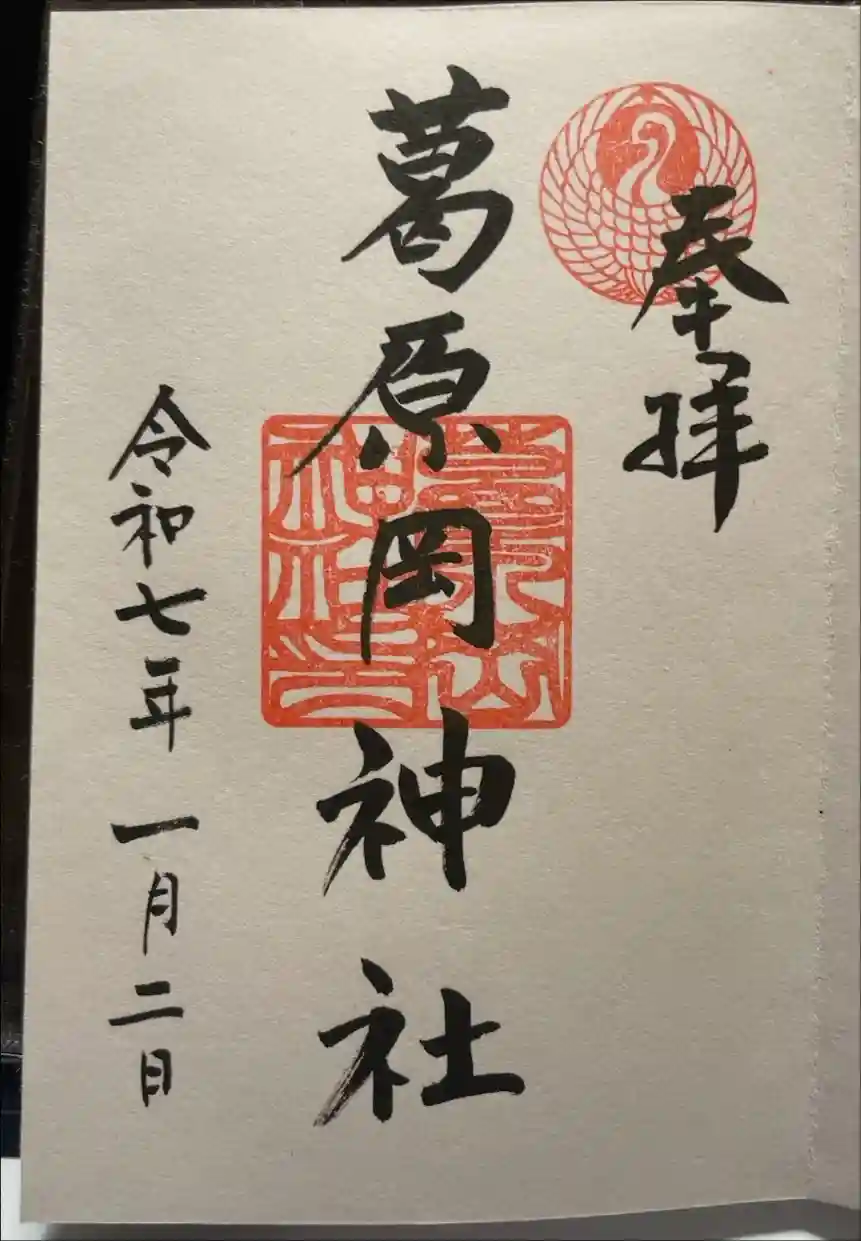 奉拝
葛原岡神社
令和七年一月二日